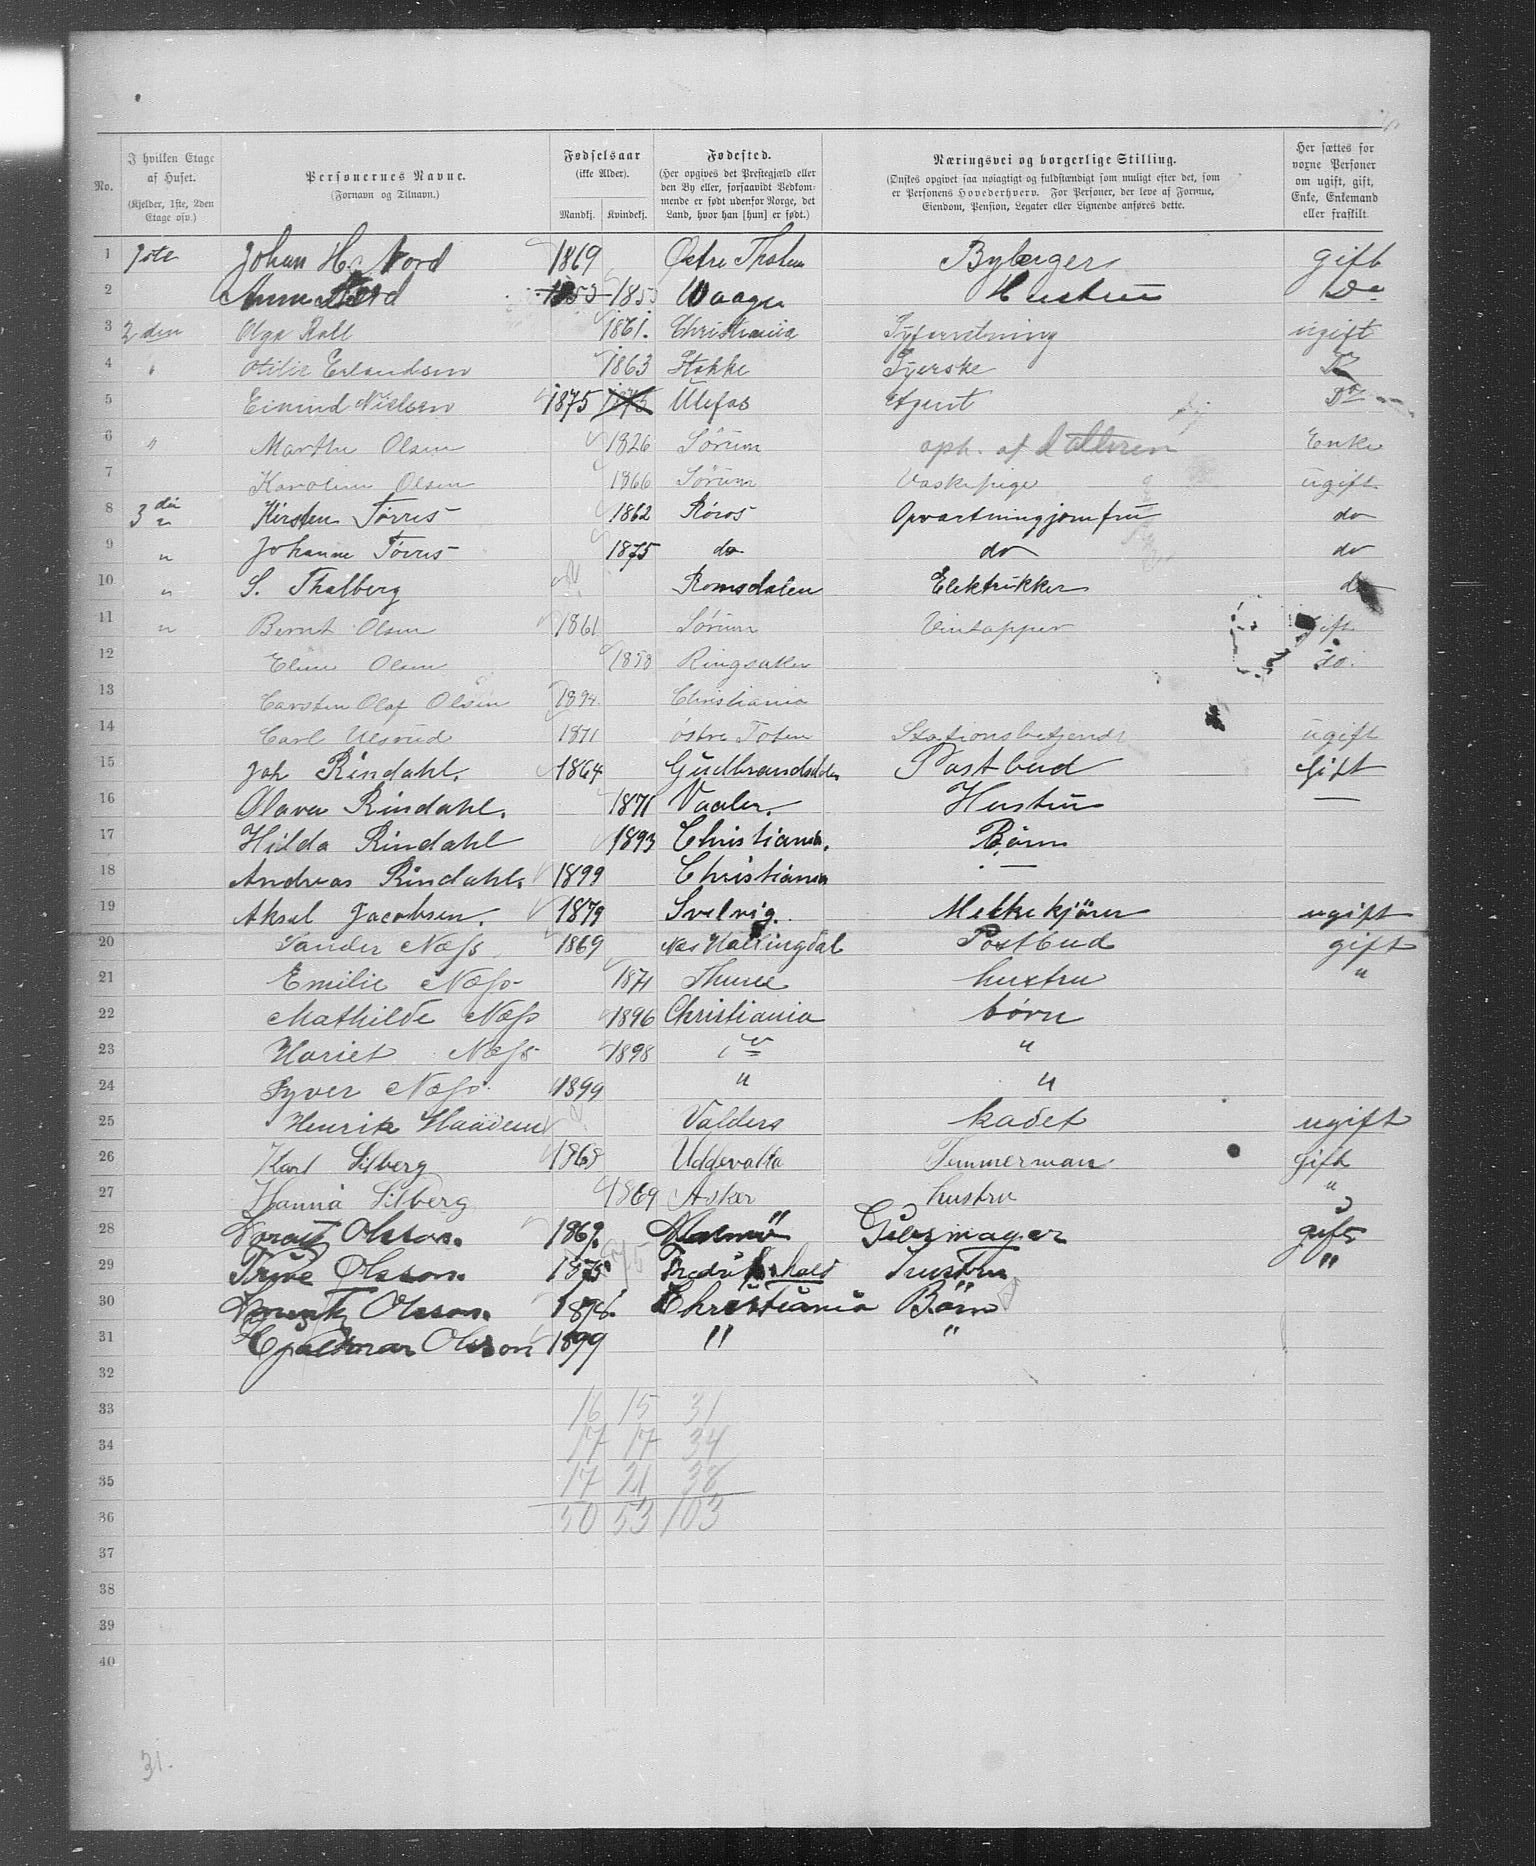 No. I hvilken Etage af Huset. (Kjelder, 1ste, 2den Etage osv.) Personernes Navne. (Fornavn og Tilnavn.) Fødselsaar (ikke Alder). Mandkj. Kvindekj. Fødested. (Her opgives det Prestegjæld eller den By eller, forsaavidt Vedkommende er født udenfor Norge, det Land, hvor han [hun] er født.) Næringsvei og borgerlige Stilling. (Ønskes opgivet saa nøiagtigt og fuldstændigt som muligt efter det, som er Personens Hovederhverv. For Personer, der leve af Formue, Eiendom, Pension, Legater eller Lignende anføres dette.) Her sættes for voxne Personer om ugift, gift, Enke, Enkemand eller fraskilt.
1 1ste Johan H. Nord 1869 Østre Thoten gift
2 Anne Nord 1853 1853 Waage Hustru Do
3 2den Olga Roll 1861. Christiania Syforretning ugift
4 Otilie Erlandsen 1863 Stokke Syerske Do
5 Eivind Nielsen 1875 1875 Ulefos Agent Do
6 " Marthe Olsen 1826 Sørum oph. af datteren Enke
7 Karoline Olsen 1866 Sørum Vaskepige ugift
8 3die Kirsten Tørres 1862 Røros Opvartningjomfru do
9 " Johanne Tørres 1875 do do do
10 " S. Thalberg Romsdalen Elektrikker do
11 " Bernt Olsen 1861 Sørum Vintapper gift
12 Eline Olsen 1858 Ringsaker do.
13 Carsten Olaf Olsen 1894 Christiania
14 Carl Ulsrud 1871 østre Toten Stationsbetjendt ugift
15 Joh Rindahl. 1864 Gudbrandsdalen Postbud Gift
16 Olava Rindahl. 1871 Vaaler. Hustru —
17 Hilda Rindahl 1893 Christiania. Børn
18 Andreas Rindahl. 1899 Christiania —
19 Aksel Jacobsen. 1879 Svelvig. Melkekjører ugift
20 Sander Næss 1869 Næs Hallingdal Postbud gift
21 Emilie Næss 1871 Thuree hustru "
22 Mathilde Næss 1896 Christiania børn
23 Hariet Næss 1898 "
24 Syver Næss 1899 " "
25 Henrik Haadem Valders kadet ugift
26 Karl Silberg 1868 Uddevalla Tømmerman gift
27 Hanna Silberg 1869 Asker hustru "
28 Olsson. 1869. Malmø gift
29 Olsson. 1875 Fredrikshald Hustru "
30 Olsson. Christiania Børn
31 Hjalmar Olsson 1899 " "
32
33 16 15 31
34 17 17 34
35 17 21 38
36 50 53 103
37
38
39
40
31.